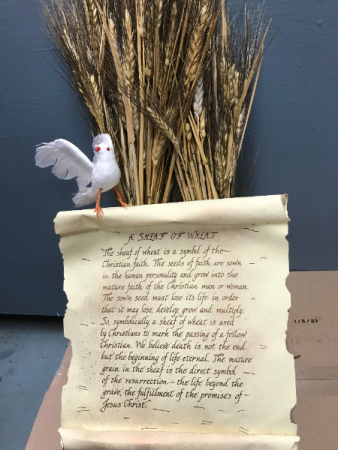 A SHEAF OF WHEAT
The sheaf of wheat is a symbol of the
Christian faith. The seeds of faith are sown
in the human personality and grow into the
mature faith of the Christian man or woman.
The sown seed must lose its life in order
that it may lose, develop grow and multiply.
So symbolically a sheaf of wheat is used
by Christians to mark the passing of a fellow
Christian. We believe death is not the end
but the beginning of life eternal. The mature
grain in the sheaf is the direct symbol
of the resurrection — the life beyond the
grave, the fulfillment of the promises of
Jesus Christ.